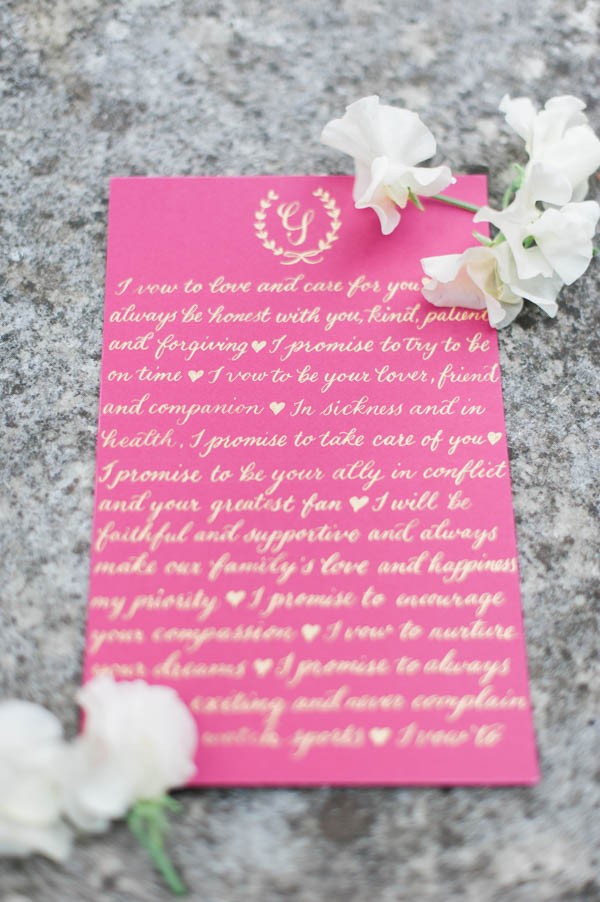 G
I vow to love and care for you
always be honest with you, kind, patient
and forgiving ♥ I promise to try to be
on time ♥ I vow to be your lover, friend
and companion ♥ In sickness and in
health, I promise to take care of you ♥
I promise to be your ally in conflict
and your greatest fan ♥ I will be
faithful and supportive and always
make our family's love and happiness
my priority ♥ I promise to encourage
your compassion ♥ I vow to nurture
your dreams ♥ I promise to always
exciting and never complain
sports ♥ I vow to